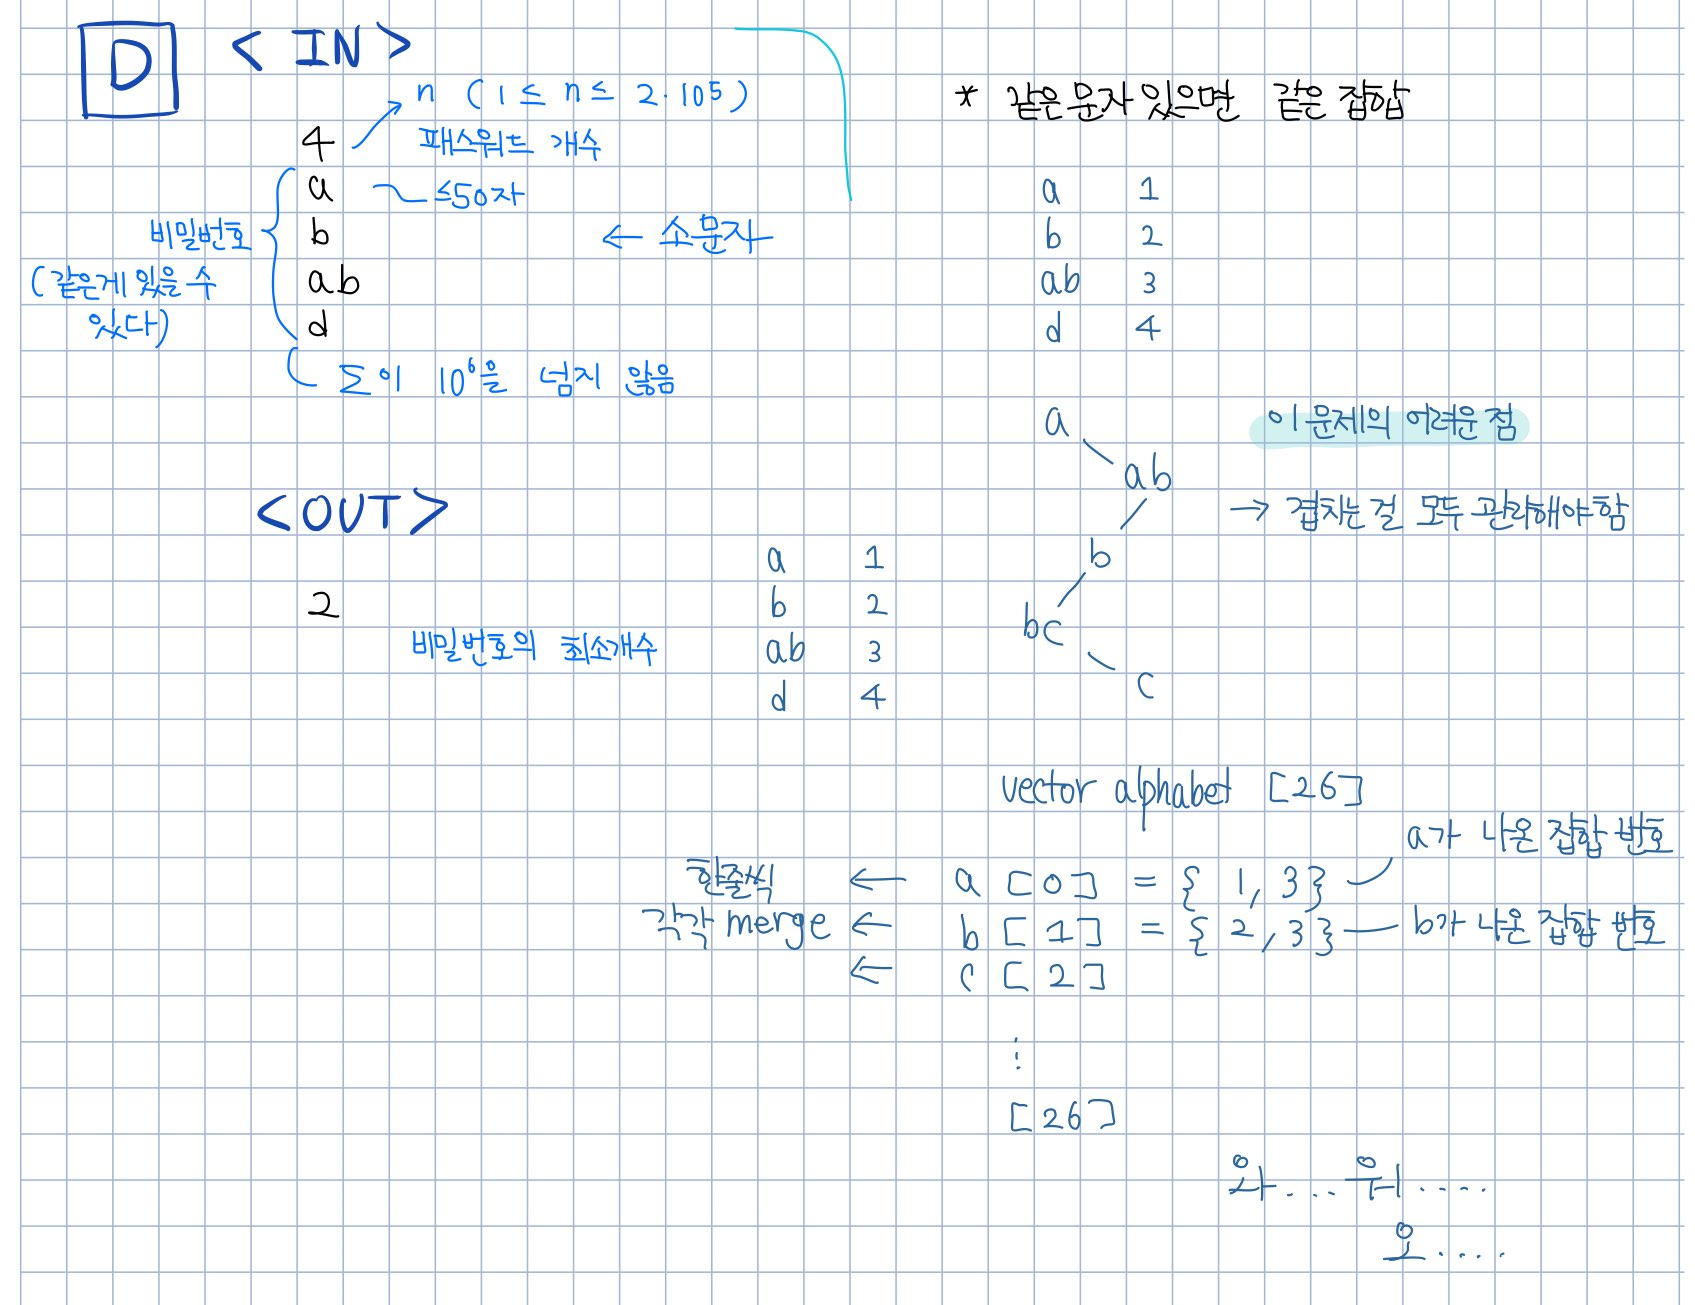 D
< IN >
n ( 1 ≤ n ≤ 2·10⁵ )
4
패스워드 개수
a
≤50자
b
← 소문자
비밀번호
ab
( 같은게 있을 수
있다)
d
∑이 10⁶을 넘지 않음
<OUT>
2
비밀번호의 최소개수
a 1
b 2
ab 3
d 4
* 같은 문자 있으면 같은 집합
a 1
b 2
ab 3
d 4
a
ab
b
bc
c
이 문제의 어려운 점
→ 겹치는 걸 모두 관리해야함
vector alphabet [26]
a가 나온 집합 번호
한줄씩 ← a [0] = { 1, 3}
각각 merge ← b [1] = { 2, 3} b가 나온 집합 번호
← c [2]
⋮
[26]
와... 워....
오....